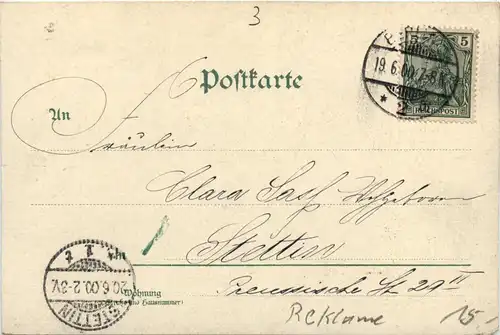 3
5
REICHSPOST
19.6.00.7-8
Postkarte
An
Fräulein
Clara Sass Wohlgeboren
Stettin
Preussische St. 29 III
Wohnung
(Strasse und Hausnummer)
STETTIN
20.6.00.2-3V.
1
Reklame
15.-